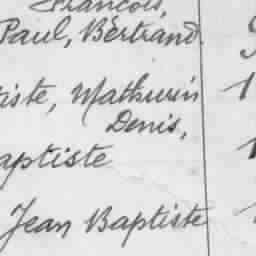 François,
Paul, Bertrand.
tiste, Mathurin
Denis,
aptiste
Jean Baptiste